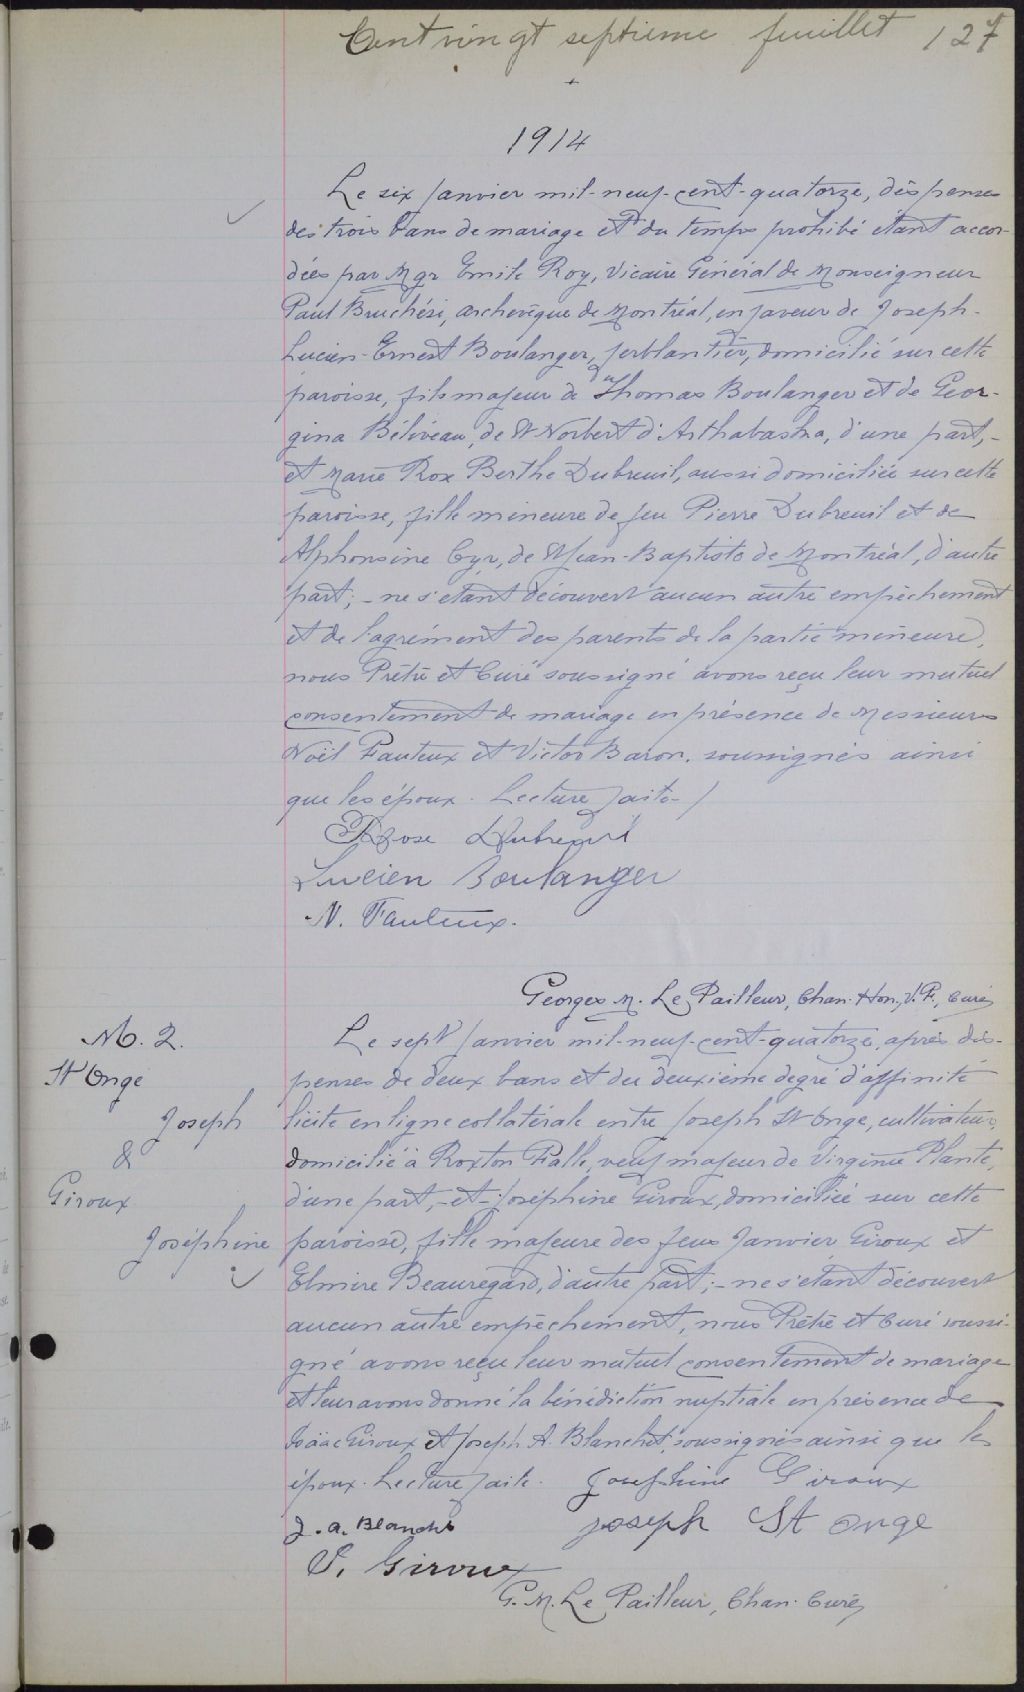 Cent vingt septième feuillet 127
1914
Le six Janvier mil-neuf-cent-quatorze, dispenses
des trois bans de mariage et du temps prohibé étant accor-
dées par Mgr Emile Roy, Vicaire Général de Monseigneur
Paul Bruchési, archevêque de Montréal, en faveur de Joseph-
Lucien-Ernest Boulanger, ferblantier, domicilié sur cette
paroisse, fils majeur de Thomas Boulanger et de Geor-
gina Béliveau, de St Norbert d'Arthabaska, d'une part,-
et Marie Rose Berthe Dubreuil, aussi domiciliée sur cette
paroisse, fille mineure de feu Pierre Dubreuil et de
Alphonsine Cyr, de St Jean-Baptiste de Montréal, d'autre
part; - ne s'étant découvert aucun autre empêchement
et de l'agrément des parents de la partie mineure,
nous Prêtre et Curé soussigné avons reçu leur mutuel
consentement de mariage en présence de Messieurs
Noël Fauteux et Victor Baron, soussignés ainsi
que les époux. Lecture faite-/
Rose Dubreuil
Lucien Boulanger
N. Fauteux.
Georges M. Le Pailleur, Chan. Hon., V.F., Curé
M. 2.
St Onge
Joseph
&
Giroux
Joséphine
Le sept Janvier mil-neuf-cent-quatorze, après dis-
penses de deux bans et du deuxième degré d'affinité
licite en ligne collatérale entre Joseph St Onge, cultivateur,
domicilié à Roxton Falls, veuf majeur de Virginie Plante,
d'une part,-et-Joséphine Giroux, domiciliée sur cette
paroisse, fille majeure des feus Janvier Giroux et
Elmire Beauregard, d'autre part; - ne s'étant découvert
aucun autre empêchement, nous Prêtre et Curé soussi-
gné avons reçu leur mutuel consentement de mariage
et leur avons donné la bénédiction nuptiale en présence de
Isaäc Giroux et Joseph A. Blanchet, soussignés ainsi que les
époux. Lecture faite. Josephine Giroux
J. A. Blanchet Joseph St Onge
I. Giroux
G. M. Le Pailleur, Chan. Curé